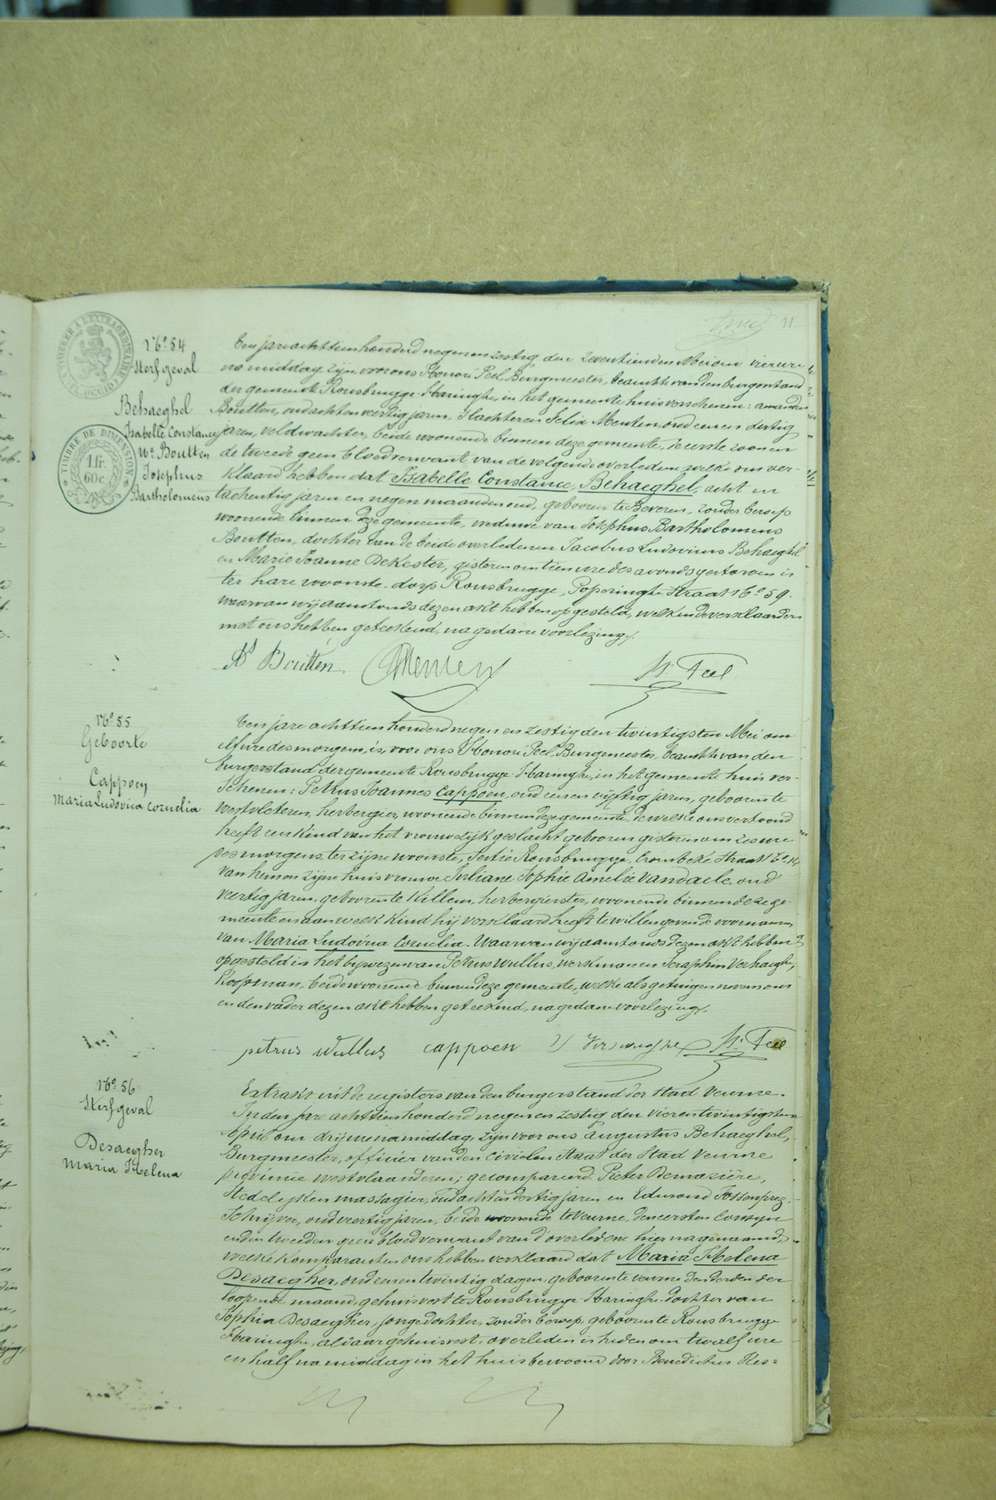 11
N° 54
Sterfgeval
Behaeghel
Isabelle Constance
We Boutten
Josephus
Bartholomeus
TIMBRE DE DIMENSION
1 fr.
60 c
Een jare achttien honderd negen en zestig den zeventienden Mei om vier ure
na middag zyn voor ons Honoré Peel Burgmeester, beambte van den burgerstand
der gemeente Rousbrugge Haringhe, in het gemeente huis verschenen: amandus
Boutten, oud acht en veertig jaren, Slachter en Felix Meuten oud een en dertig
jaren, veldwachter, beide woonende binnen deze gemeente, de eerste zoon en
de tweede geen bloedverwant van de volgende overledene welke ons ver-
klaard hebben dat Isabelle Constance Behaeghel, acht en
tachentig jaren en negen maanden oud, geboren te Beveren, zonder beroep
woonende binnen deze gemeente, weduwe van Josephus Bartholomeus
Boutten, dochter van de beide overledenen Jacobus Ludovicus Behaeghel
en Marie Joanne DeKester, gisteren om tien ure des avonds gestorven is
ter hare woonste dorp Rousbrugge, Poperinghe Straat N° 59.
waarvan wij aanstonds dezen akt hebben opgesteld, welken de verklaarders
met ons hebben geteekend, na gedane voorlezing.
Ads Boutten Meuten H. Peel
N° 55
Geboorte
Cappoen
Maria Ludovica Cornelia
Een jare achttien honderd negen en zestig den twintigsten Mei om
elf ure des morgens, is voor ons Honoré Peel Burgmeester, beambte van den
burgerstand der gemeente Rousbrugge Haringhe, in het gemeente huis ver-
schenen: Petrus Joannes Cappoen, oud een en vyftig jaren, geboren te
Westvleteren, herbergier, woonende binnen deze gemeente, dewelke ons vertoond
heeft een kind van het vrouwelijk geslacht geboren gisteren om zes ure
des morgens, ter zijne woonste, Sectie Rousbrugge, Crombeke Straat N° 14
van hem en zijne huisvrouw Juliane Sophie Amelie Vandaele, oud
veertig jaren, geboren te Killem, herbergierster, woonende binnen deze ge
meente en aan welk kind hij verklaard heeft te willen geven de voornamen
van Maria Ludovica Cornelia. Waarvan wij aanstonds dezen akt hebben
opgesteld in het bijwezen van Petrus Wullus, werkman en Seraphin Verhaeghe,
Koopman, beide woonende binnen deze gemeente, welke als getuigen nevens ons
en den vader dezen akt hebben geteekend, na gedane voorlezing.
petrus wullus cappoen S Verhaeghe H. Peel
N° 56
Sterfgeval
Desaegher
Maria Helena
Extrait uit de registers van den burgerstand der Stad Veurne.
In den jare achttien honderd negen en zestig den vier en twintigsten
April om drij ure na middag, zijn voor ons Augustus Behaeghel,
Burgmeester, officier van den Civielen Staat der Stad Veurne
provincie westvlaanderen; gecompareerd Pieter Demazière,
Stedelyken massagier, oud acht en dertig jaren en Edmond
Schrijver, oud veertig jaren, beide woonende te Veurne, den eersten
en den tweeden geen bloedverwant van d'overledene hier nagenaamd,
welke Komparanten ons hebben verklaard dat Maria Helena
Desaegher, oud een en twintig dagen, geboren te veurne den derden der
loopende maand, gehuisvest te Rousbrugge Haringhe dochter van
Sophia Desaegher, jonge dochter, zonder beroep, geboren te Rousbrugge
Haringhe, aldaar gehuisvest, overleden is heden om twaalf ure
en half na middag in het huis bewoond door Benedictus Hos=